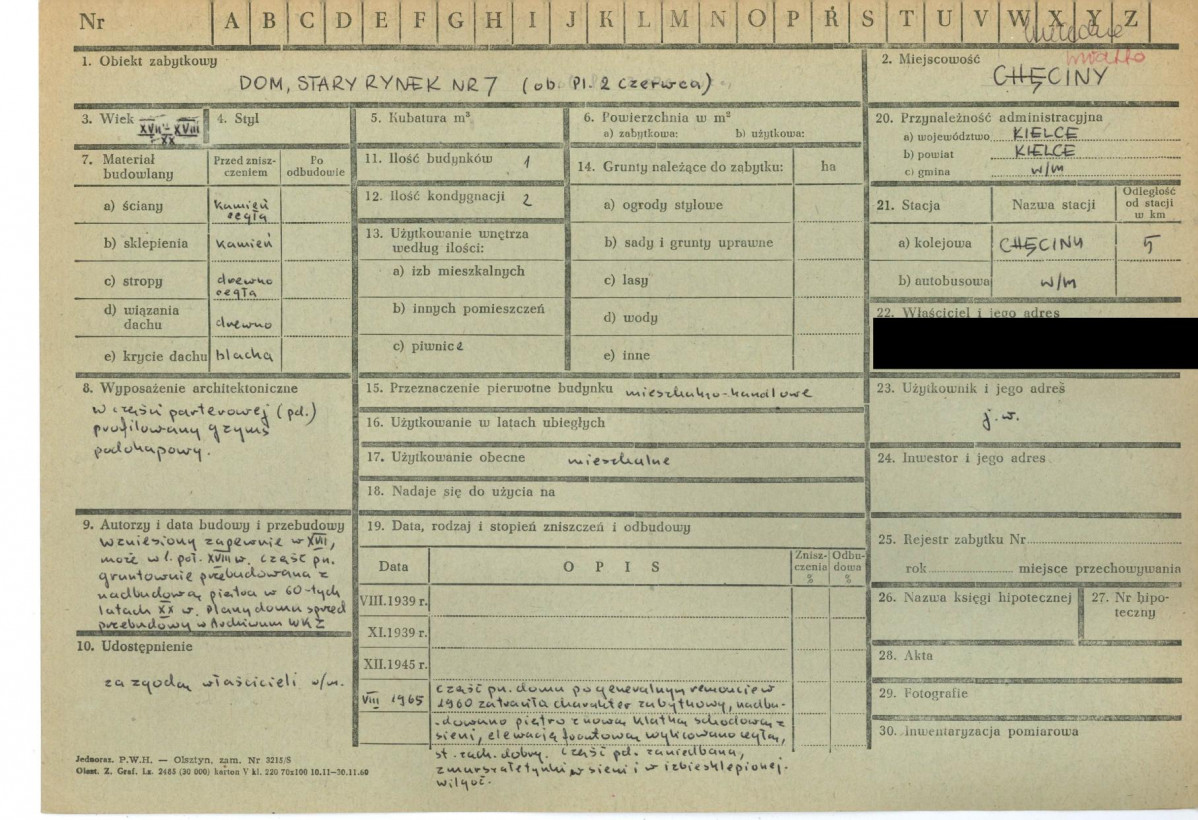 Nr A B C D E F G H I J K L M N O P R S T U V W X Y Z
miasto
1. Obiekt zabytkowy
DOM, STARY RYNEK NR 7 (ob. Pl. 2 Czerwca)
2. Miejscowość
CHĘCINY
3. Wiek XVII - XVIII
XX
4. Styl
5. Kubatura m³
6. Powierzchnia w m²
a) zabytkowa: b) użytkowa:
20. Przynależność administracyjna
a) województwo KIELCE
b) powiat KIELCE
c) gmina w/m
7. Materiał budowlany
Przed znisz-
czeniem
Po
odbudowie
a) ściany kamień
cegła
b) sklepienia kamień
c) stropy drewno
cegła
d) wiązania
dachu drewno
e) krycie dachu blacha
11. Ilość budynków 1
12. Ilość kondygnacji 2
13. Użytkowanie wnętrza
według ilości:
a) izb mieszkalnych
b) innych pomieszczeń
c) piwnic 2
14. Grunty należące do zabytku: ha
a) ogrody stylowe
b) sady i grunty uprawne
c) lasy
d) wody
e) inne
21. Stacja Nazwa stacji
Odległość
od stacji
w km
a) kolejowa CHĘCINY 5
b) autobusowa w/m
22. Właściciel i jego adres
8. Wyposażenie architektoniczne
w części parterowej (pd.)
profilowany gzyms
podokapowy.
15. Przeznaczenie pierwotne budynku mieszkalno-handlowe
16. Użytkowanie w latach ubiegłych
17. Użytkowanie obecne mieszkalne
18. Nadaje się do użycia na
23. Użytkownik i jego adres
j.w.
24. Inwestor i jego adres
9. Autorzy i data budowy i przebudowy
Wzniesiony zapewnie w XVII,
może w I. poł. XVIII w. część pn.
gruntownie przebudowana z
nadbudową piętra w 60-tych
latach XX w. Plany domu sprzed
przebudowy w Archiwum WKZ
10. Udostępnienie
za zgodą właścicieli w/m.
19. Data, rodzaj i stopień zniszczeń i odbudowy
Data OPIS
Znisz-
czenia
%
Odbu-
dowa
%
VIII.1939 r.
XI.1939 r.
XII.1945 r.
VIII 1965
część pn. domu po generalnym remoncie w
1960 zatraciła charakter zabytkowy, nadbu-
dowano piętro z nową klatką schodową z
sieni, elewację frontową wylicowano cegłą,
st. zach. dobry. Część pd. zaniedbana,
zmurszałe tynki w sieni i w izbie sklepionej.
wilgoć.
25. Rejestr zabytku Nr
rok miejsce przechowywania
26. Nazwa księgi hipotecznej
27. Nr hipo-
teczny
28. Akta
29. Fotografie
30. Inwentaryzacja pomiarowa
Jednoraz. P.W.H. — Olsztyn, zam. Nr 3215/S
Olszt. Z. Graf. l.z. 2465 (30 000) karton V kl. 220 70x100 10.11-30.11.60